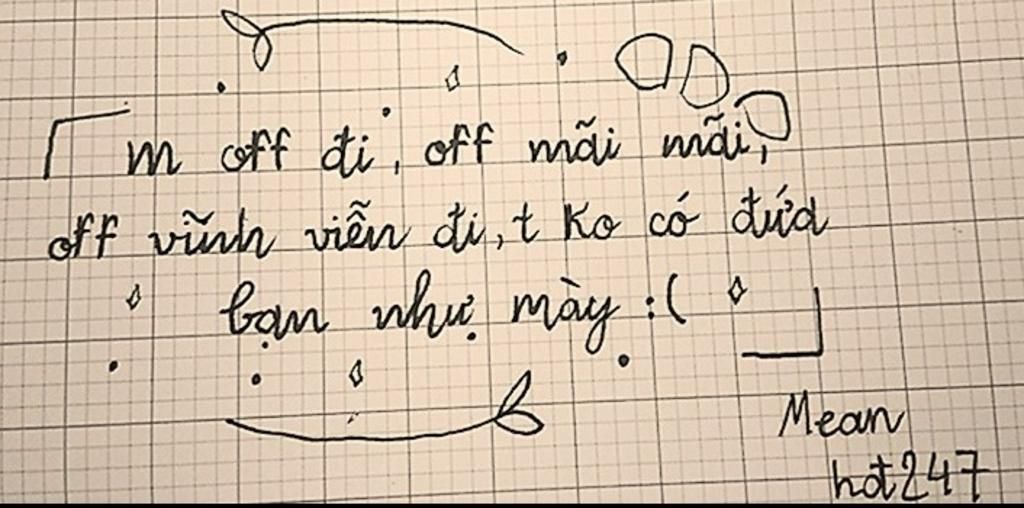 m off đi, off mãi mãi,
off vĩnh viễn đi, t ko có đứa
bạn như mày :(
Mean
hot247